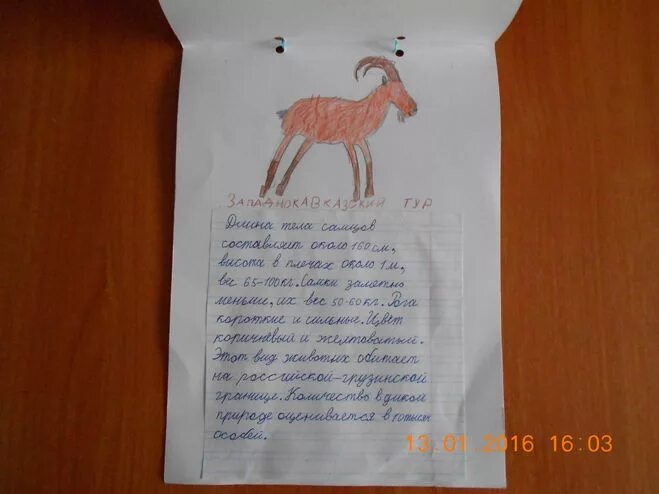 ЗАПАДНОКАВКАЗСКИЙ ТУР
Длина тела самцов
составляет около 160 см,
высота в плечах около 1 м,
вес 65-100 кг. Самки заметно
меньши, их вес 50-60 кг. Рога
короткие и сильные. Цвет
коричневый и желтоватый.
Этот вид животных обитает
на российской-грузинской
границе. Количество в диком
природе оценивается в 10 тысяч
особей.
13.01.2016 16:03